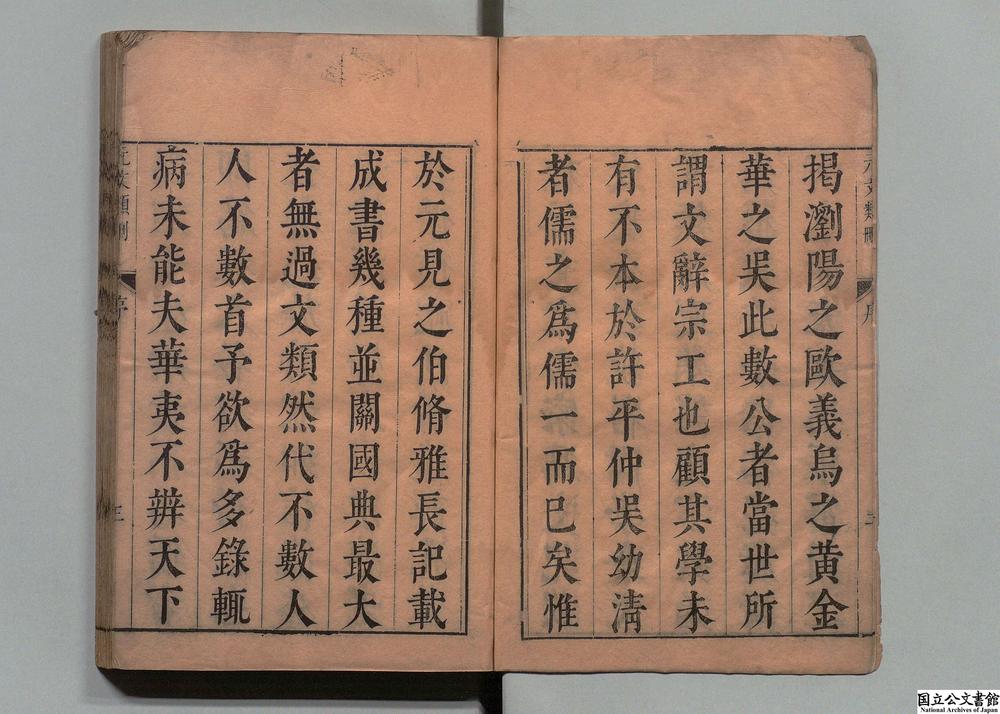 揭瀏陽之歐義烏之黃金
華之吳此數公者當世所
謂文辭宗工也顧其學未
有不本於許平仲吳幼淸
者儒之爲儒一而巳矣惟
於元見之伯脩雅長記載
成書幾種並關國典最大
者無過文類然代不數人
人不數首予欲爲多錄輒
病未能夫華夷不辨天下
元文類刪
序
国立公文書館
National Archives of Japan